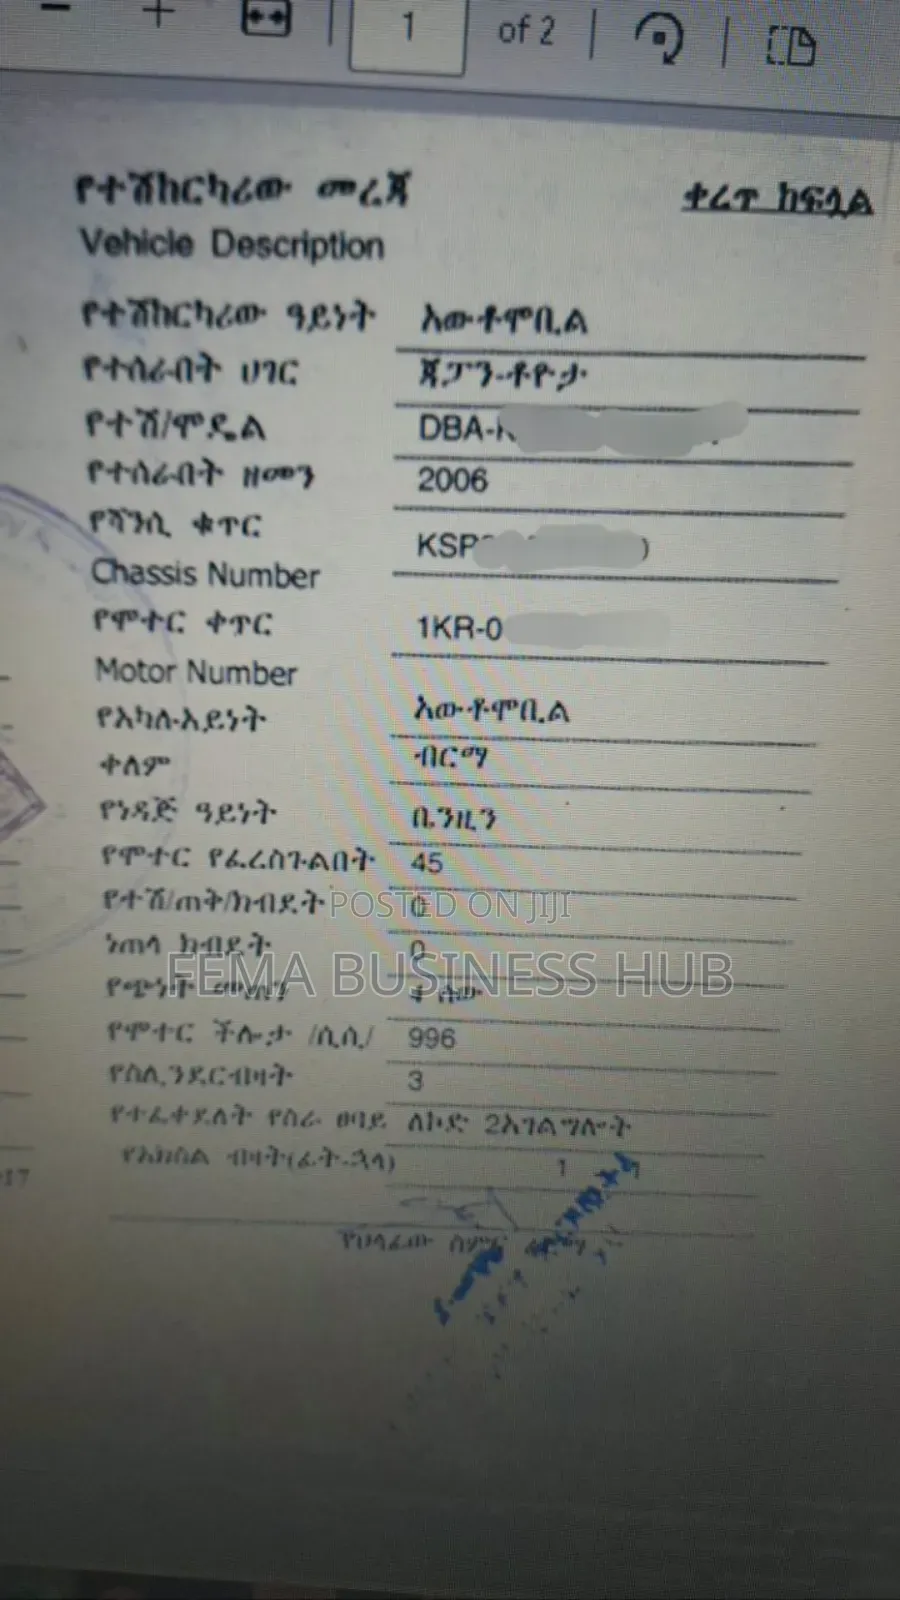 1 of 2
የተሽከርካሪው መረጃ ቀረጥ ከፍሏል
Vehicle Description
የተሽከርካሪው ዓይነት አውቶሞቢል
የተሰራበት ሀገር ጃፓን-ቶዮታ
የተሽ/ሞዴል DBA-
የተሰራበት ዘመን 2006
የሻንሲ ቁጥር KSP
Chassis Number
የሞተር ቀጥር 1KR-0
Motor Number
የአካሉ አይነት አውቶሞቢል
ቀለም ብርማ
የነዳጅ ዓይነት ቤንዚን
የሞተር የፈረስጉልበት 45
የተሽ/ጠቅ/ክብደት 0
POSTED ON JIJI
ነጠላ ክብደት 0
FEMA BUSINESS HUB
የጭነት መጠን ሰው
የሞተር ችሎታ /ሲሲ/ 996
የሲሊንደር ብዛት 3
የተፈቀደለት የስራ ፀባይ ለኮድ 2አገልግሎት
የአክስል ብዛት(ፊት-ኋላ) 1 1